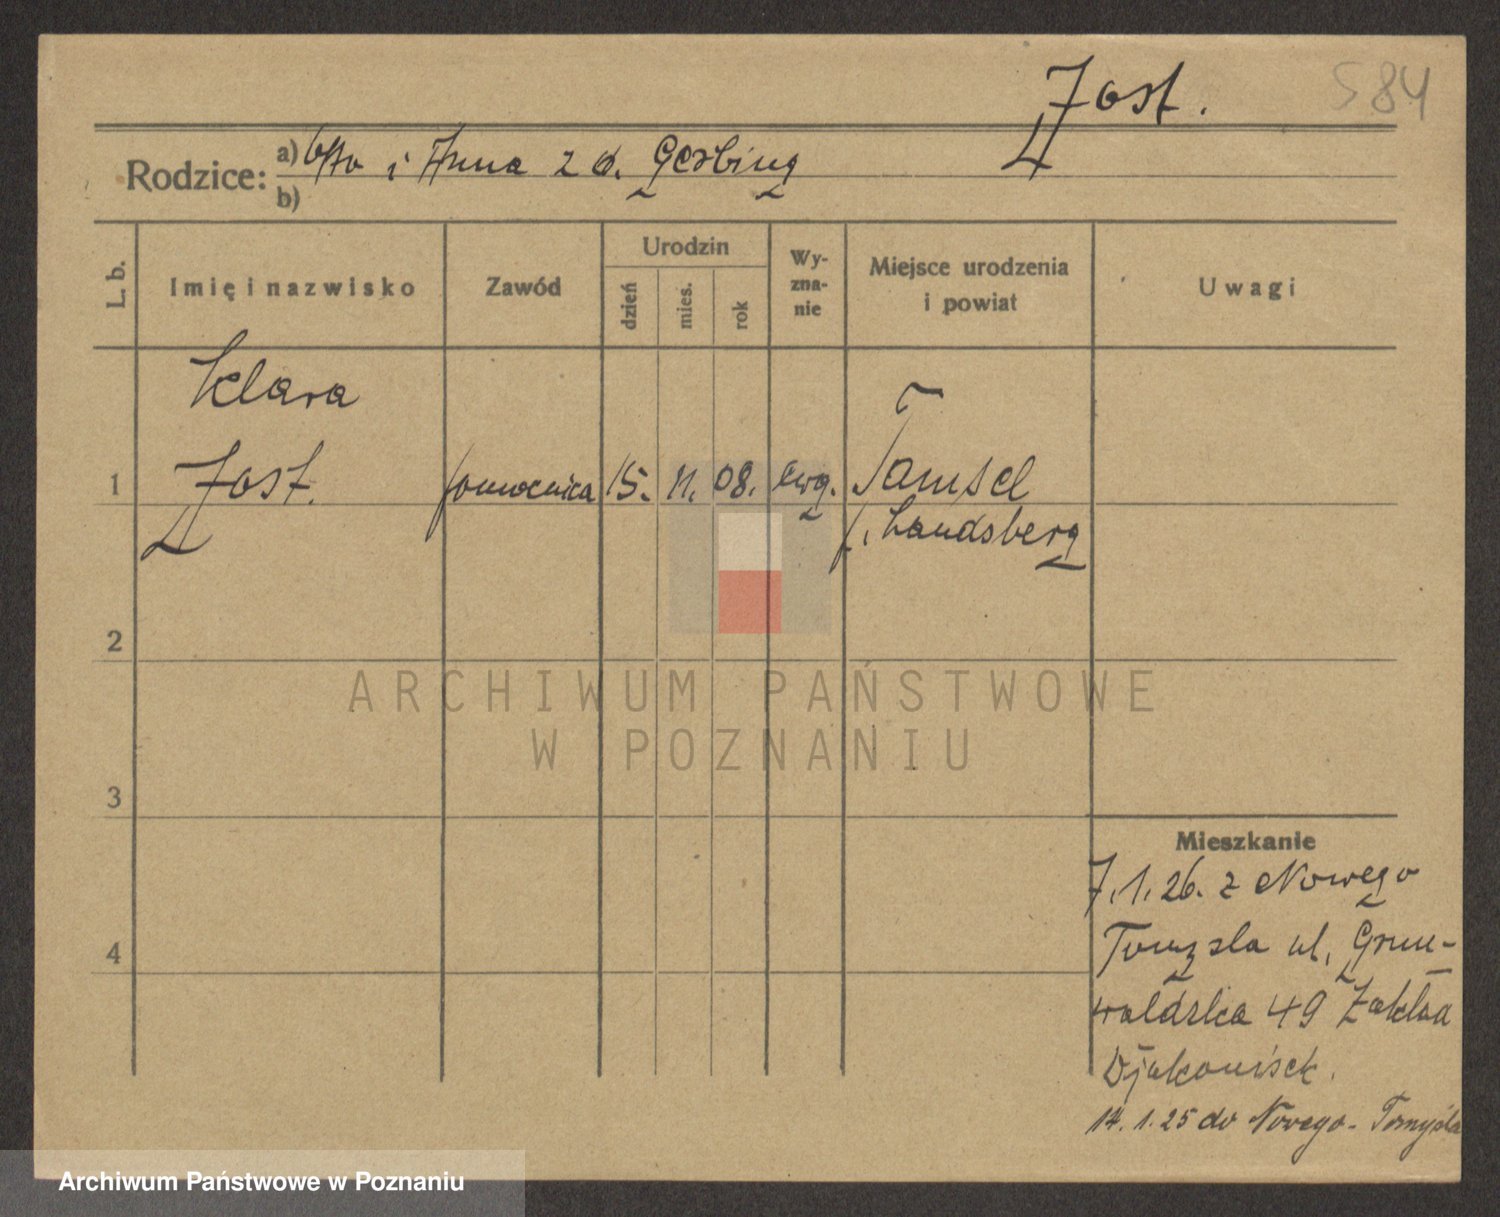 584
Jost.
Rodzice: a) Otto i Anna z d. Gerbing
b)
L. b. Imię i nazwisko Zawód Urodzin dzień mies. rok Wy-zna-nie Miejsce urodzenia i powiat Uwagi
Klara
1 Jost. pomocnica 15. 11. 08. ewg. Tamsel
p. Landsberg
2
3
4
Mieszkanie
7.1.26. z Nowego
Tomysla ul. Grun-
waldzka 49 Zakład
Djakonisek.
14. 1. 25 do Nowego-Tomyśla
ARCHIWUM PAŃSTWOWE
W POZNANIU
Archiwum Państwowe w Poznaniu